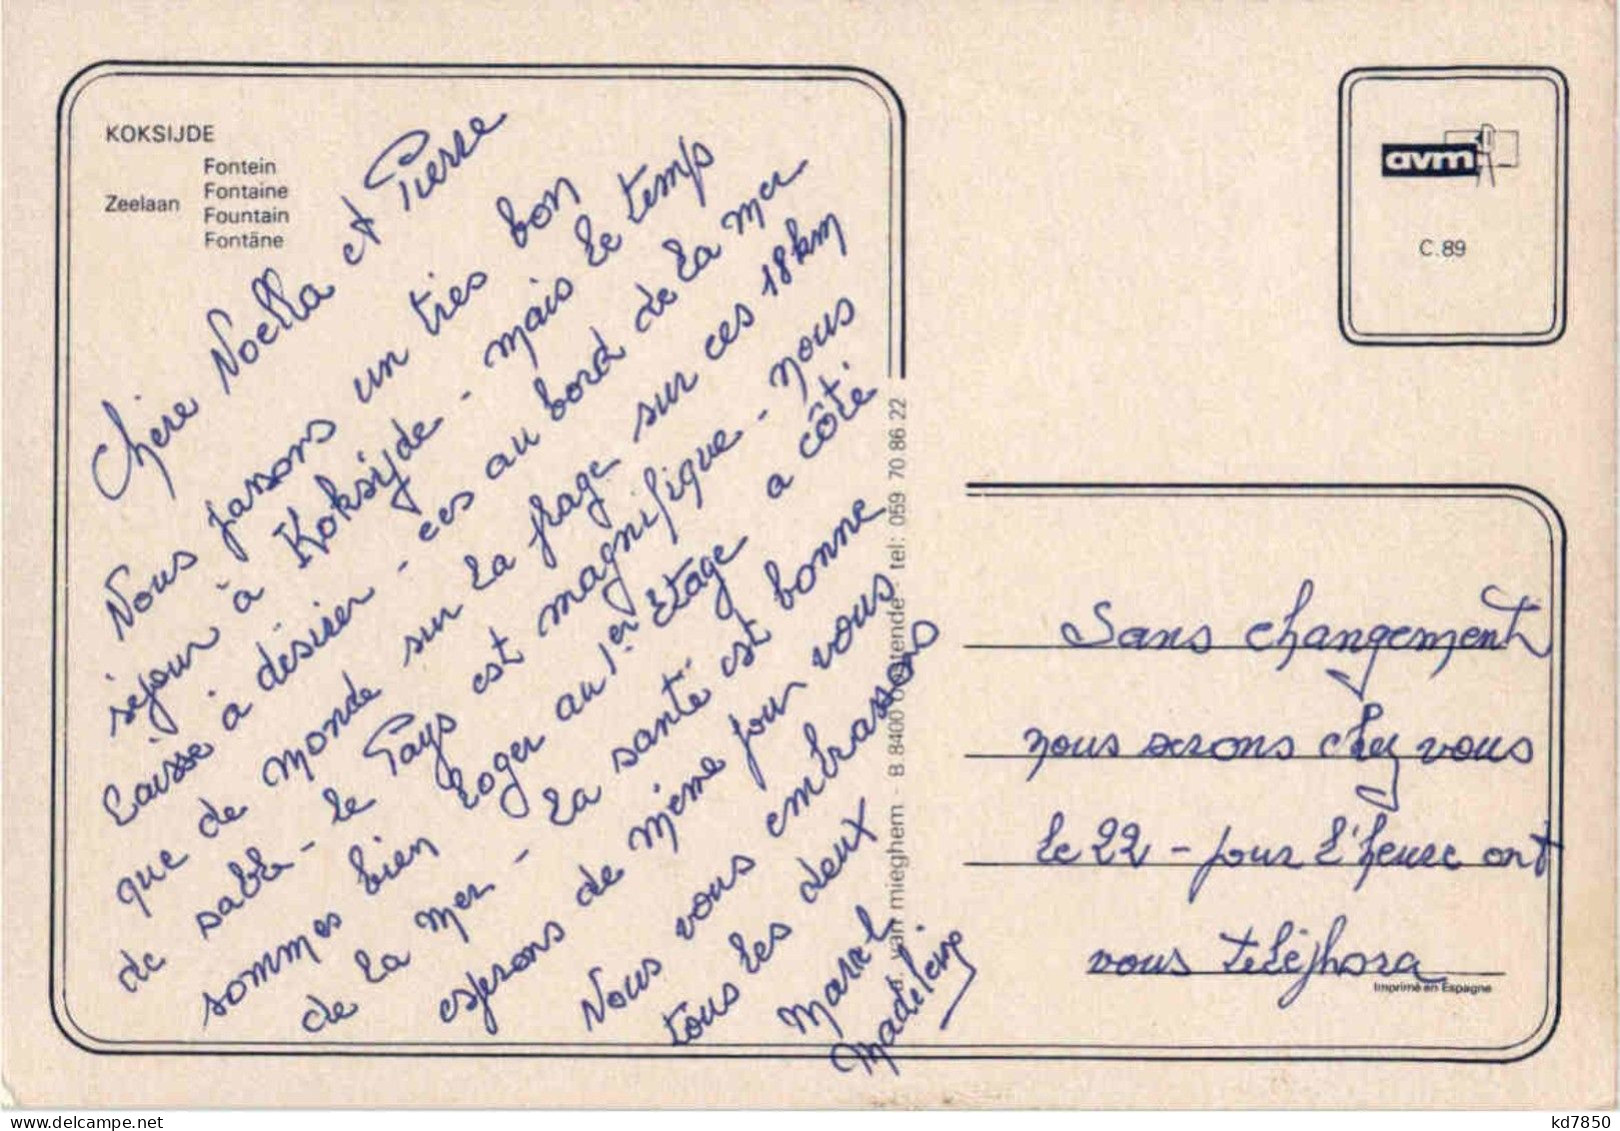 KOKSIJDE
Zeelaan
Fontein
Fontaine
Fountain
Fontäne
Chère Noella et Pierre
Nous passons un tres bon
séjour à Koksijde - mais le temps
laisse à désirer - ces au bord de la mer
que de monde sur la plage sur ces 18 km
de sable - le Pays est magnifique - nous
sommes bien loger au 1er étage a côté
de la mer - la santé est bonne
esperons de même pour vous
Nous vous embrassons
tous les deux
Marcel
Madeleine
a. van mieghem - B 8400 oostende - tel: 059 70 86 22
avm
C.89
Sans changement
nous serons chez vous
le 22 - pour l'heure ont
vous teléphora
Imprimé en Espagne
kd7850